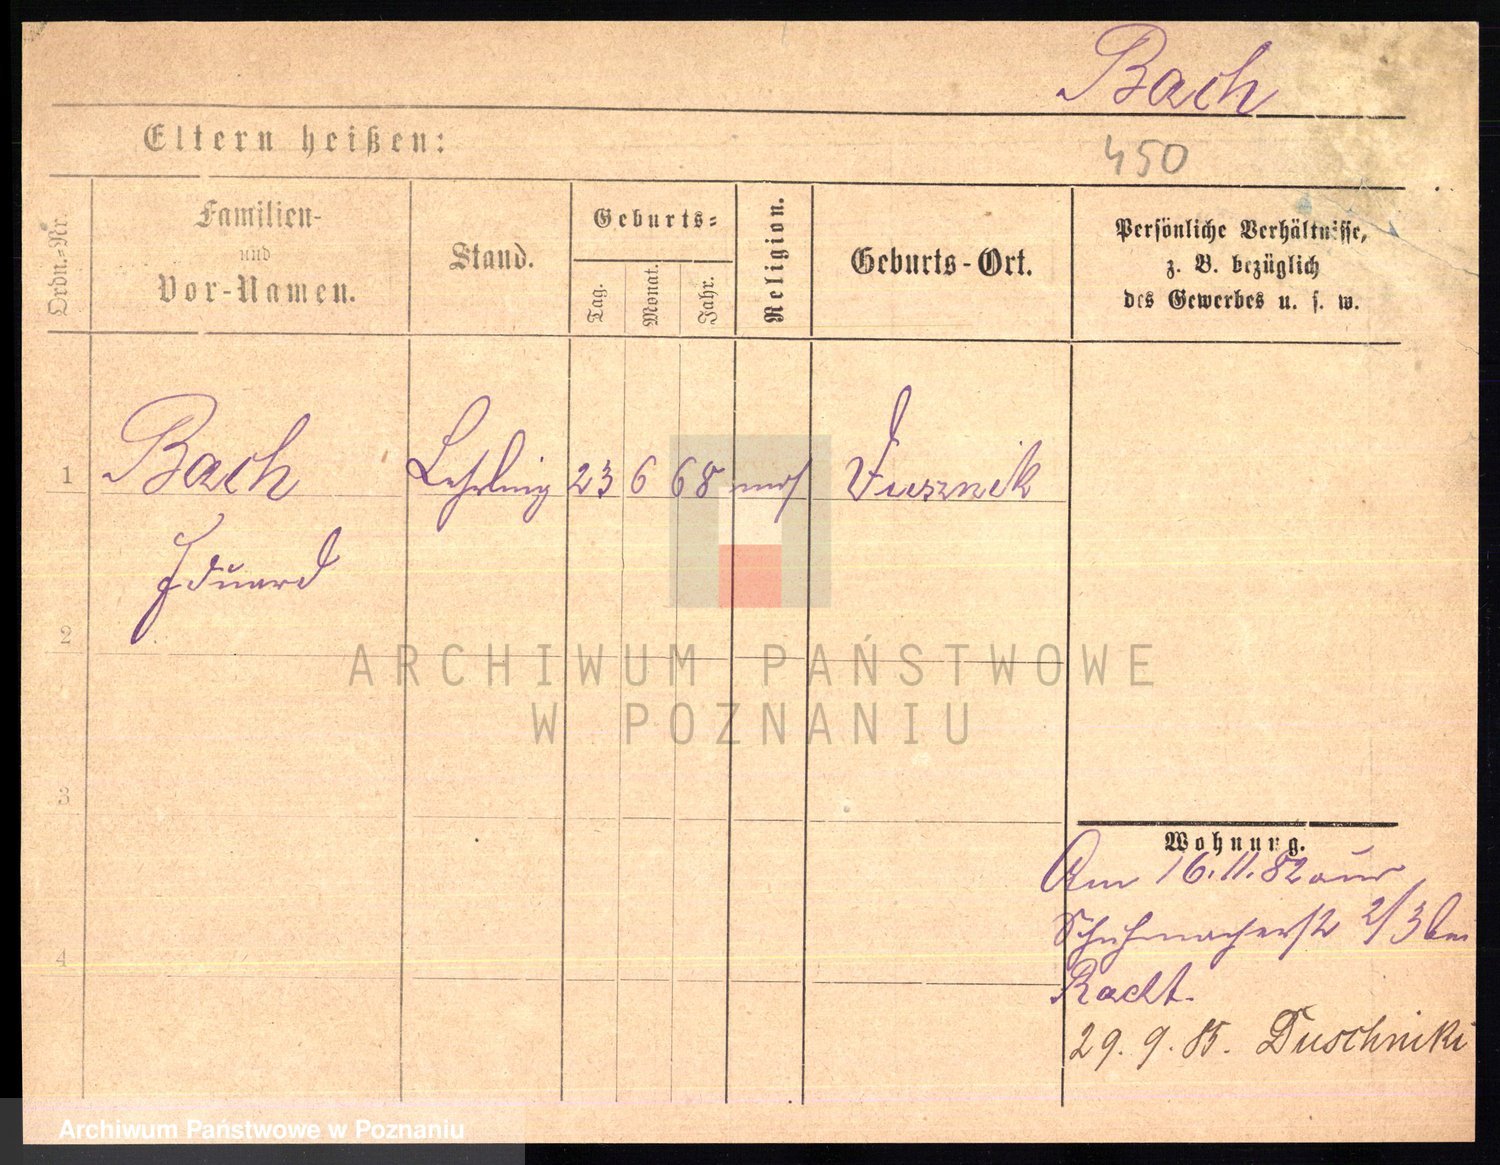 Bach
Eltern heißen:
450
Ordn.-Nr.
Familien-
und
Vor-Namen.
Stand.
Geburts-
Tag.
Monat.
Jahr.
Religion.
Geburts-Ort.
Persönliche Verhältnisse,
z. B. bezüglich
des Gewerbes u. s. w.
1 Bach Lehrling 23 6 68 mos
Eduard
2
ARCHIWUM PAŃSTWOWE
W POZNANIU
3
Wohnung.
Am 16.11.82 aus
Schuhmacherstr 2/3 bei
4
29. 9. 85. Duschniki
Archiwum Państwowe w Poznaniu